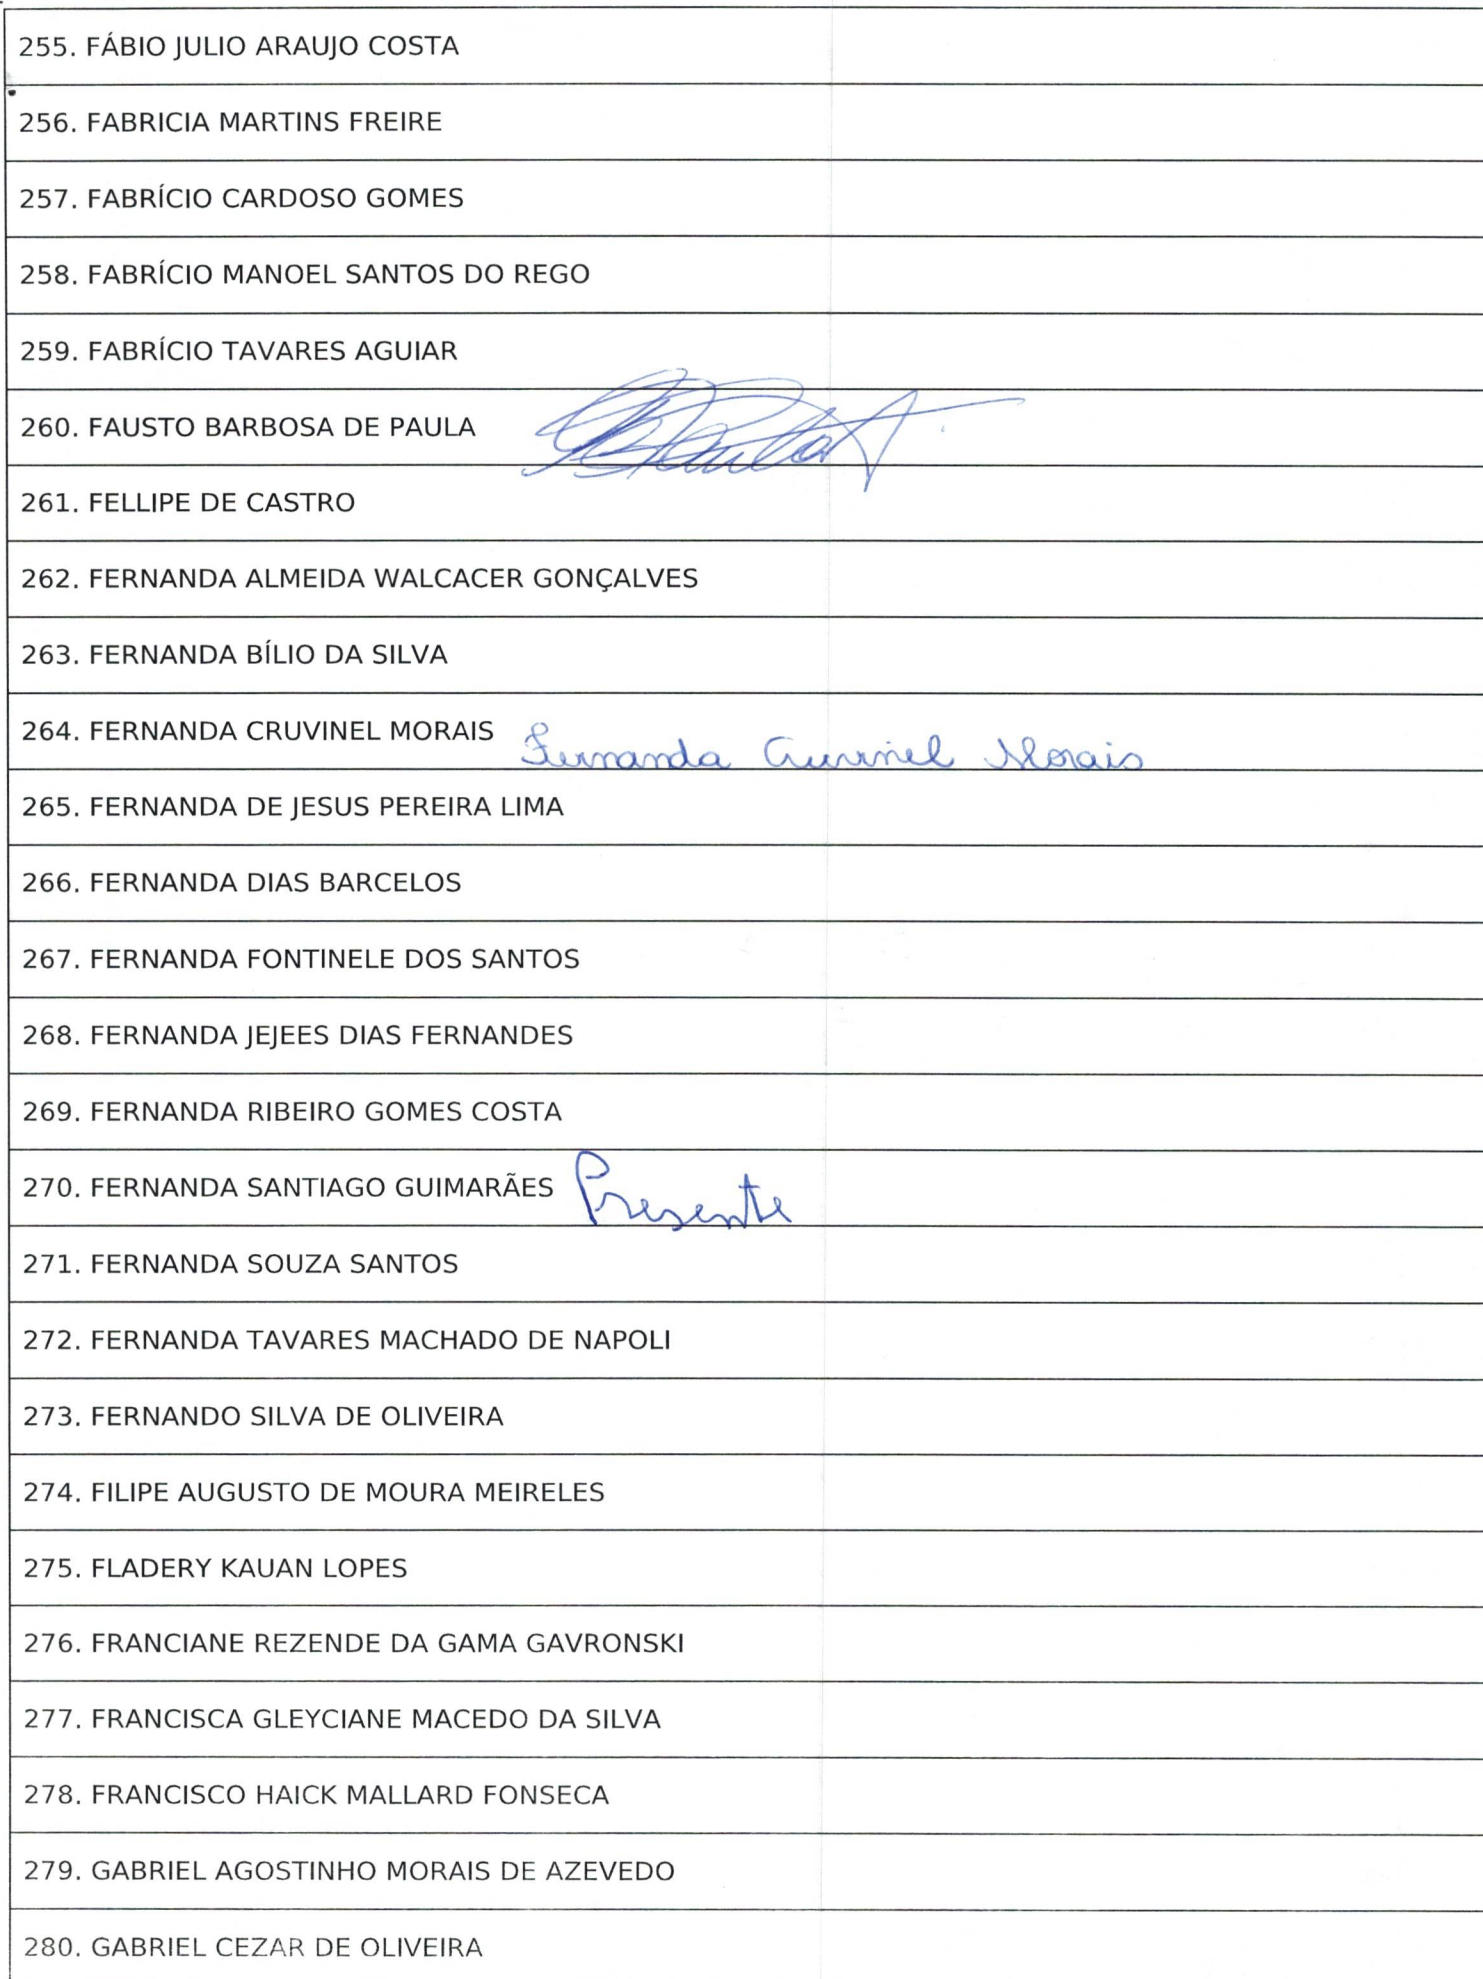 255. FÁBIO JULIO ARAUJO COSTA
256. FABRICIA MARTINS FREIRE
257. FABRÍCIO CARDOSO GOMES
258. FABRÍCIO MANOEL SANTOS DO REGO
259. FABRÍCIO TAVARES AGUIAR
260. FAUSTO BARBOSA DE PAULA
261. FELLIPE DE CASTRO
262. FERNANDA ALMEIDA WALCACER GONÇALVES
263. FERNANDA BÍLIO DA SILVA
264. FERNANDA CRUVINEL MORAIS Fernanda Cruvinel Morais
265. FERNANDA DE JESUS PEREIRA LIMA
266. FERNANDA DIAS BARCELOS
267. FERNANDA FONTINELE DOS SANTOS
268. FERNANDA JEJEES DIAS FERNANDES
269. FERNANDA RIBEIRO GOMES COSTA
270. FERNANDA SANTIAGO GUIMARÃES Presente
271. FERNANDA SOUZA SANTOS
272. FERNANDA TAVARES MACHADO DE NAPOLI
273. FERNANDO SILVA DE OLIVEIRA
274. FILIPE AUGUSTO DE MOURA MEIRELES
275. FLADERY KAUAN LOPES
276. FRANCIANE REZENDE DA GAMA GAVRONSKI
277. FRANCISCA GLEYCIANE MACEDO DA SILVA
278. FRANCISCO HAICK MALLARD FONSECA
279. GABRIEL AGOSTINHO MORAIS DE AZEVEDO
280. GABRIEL CEZAR DE OLIVEIRA